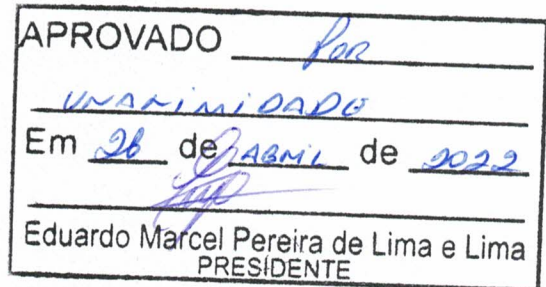 APROVADO Por
UNANIMIDADE
Em 26 de ABRIL de 2022
Eduardo Marcel Pereira de Lima e Lima
PRESIDENTE